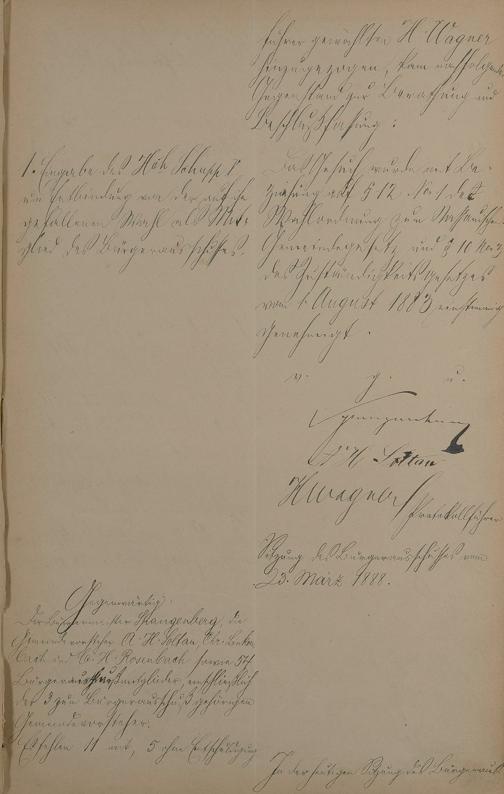 führer gewählten H. Wagner
hinzugezogen, kam nachfolgender
Gegenstand zur Berathung und
Beschlußfassung:
1. Eingabe des Hch
um Entbindung von der auf ihn
gefallenen Wahl als Mit-
glied des Bürgerausschusses.
Das Gesuch wurde mit Be-
ziehung auf § 12 No. 1 der
Wahlordnung zum Nassauischen
Gemeindegesetz und § 10 No. 3
des Zuständigkeitsgesetzes
vom 1. August 1883 einstimmig
genehmigt.
v. g. u.
Soltau
H Wagner Protokollführer
Sitzung des Bürgerausschusses vom
23. März 1888.
Gegenwärtig:
Der Bürgermeister Stangenberg, die
Gemeindevorsteher A. H. Soltau, Chr.
und H. Rosenbach sowie 54
Bürgerausschußmitglieder, einschließlich
der 3 zum Bürgerausschuß gehörigen
Gemeindevorsteher.
Es fehlen 11 mit, 5 ohne Entschuldigung
In der heutigen Sitzung des Bürgeraus